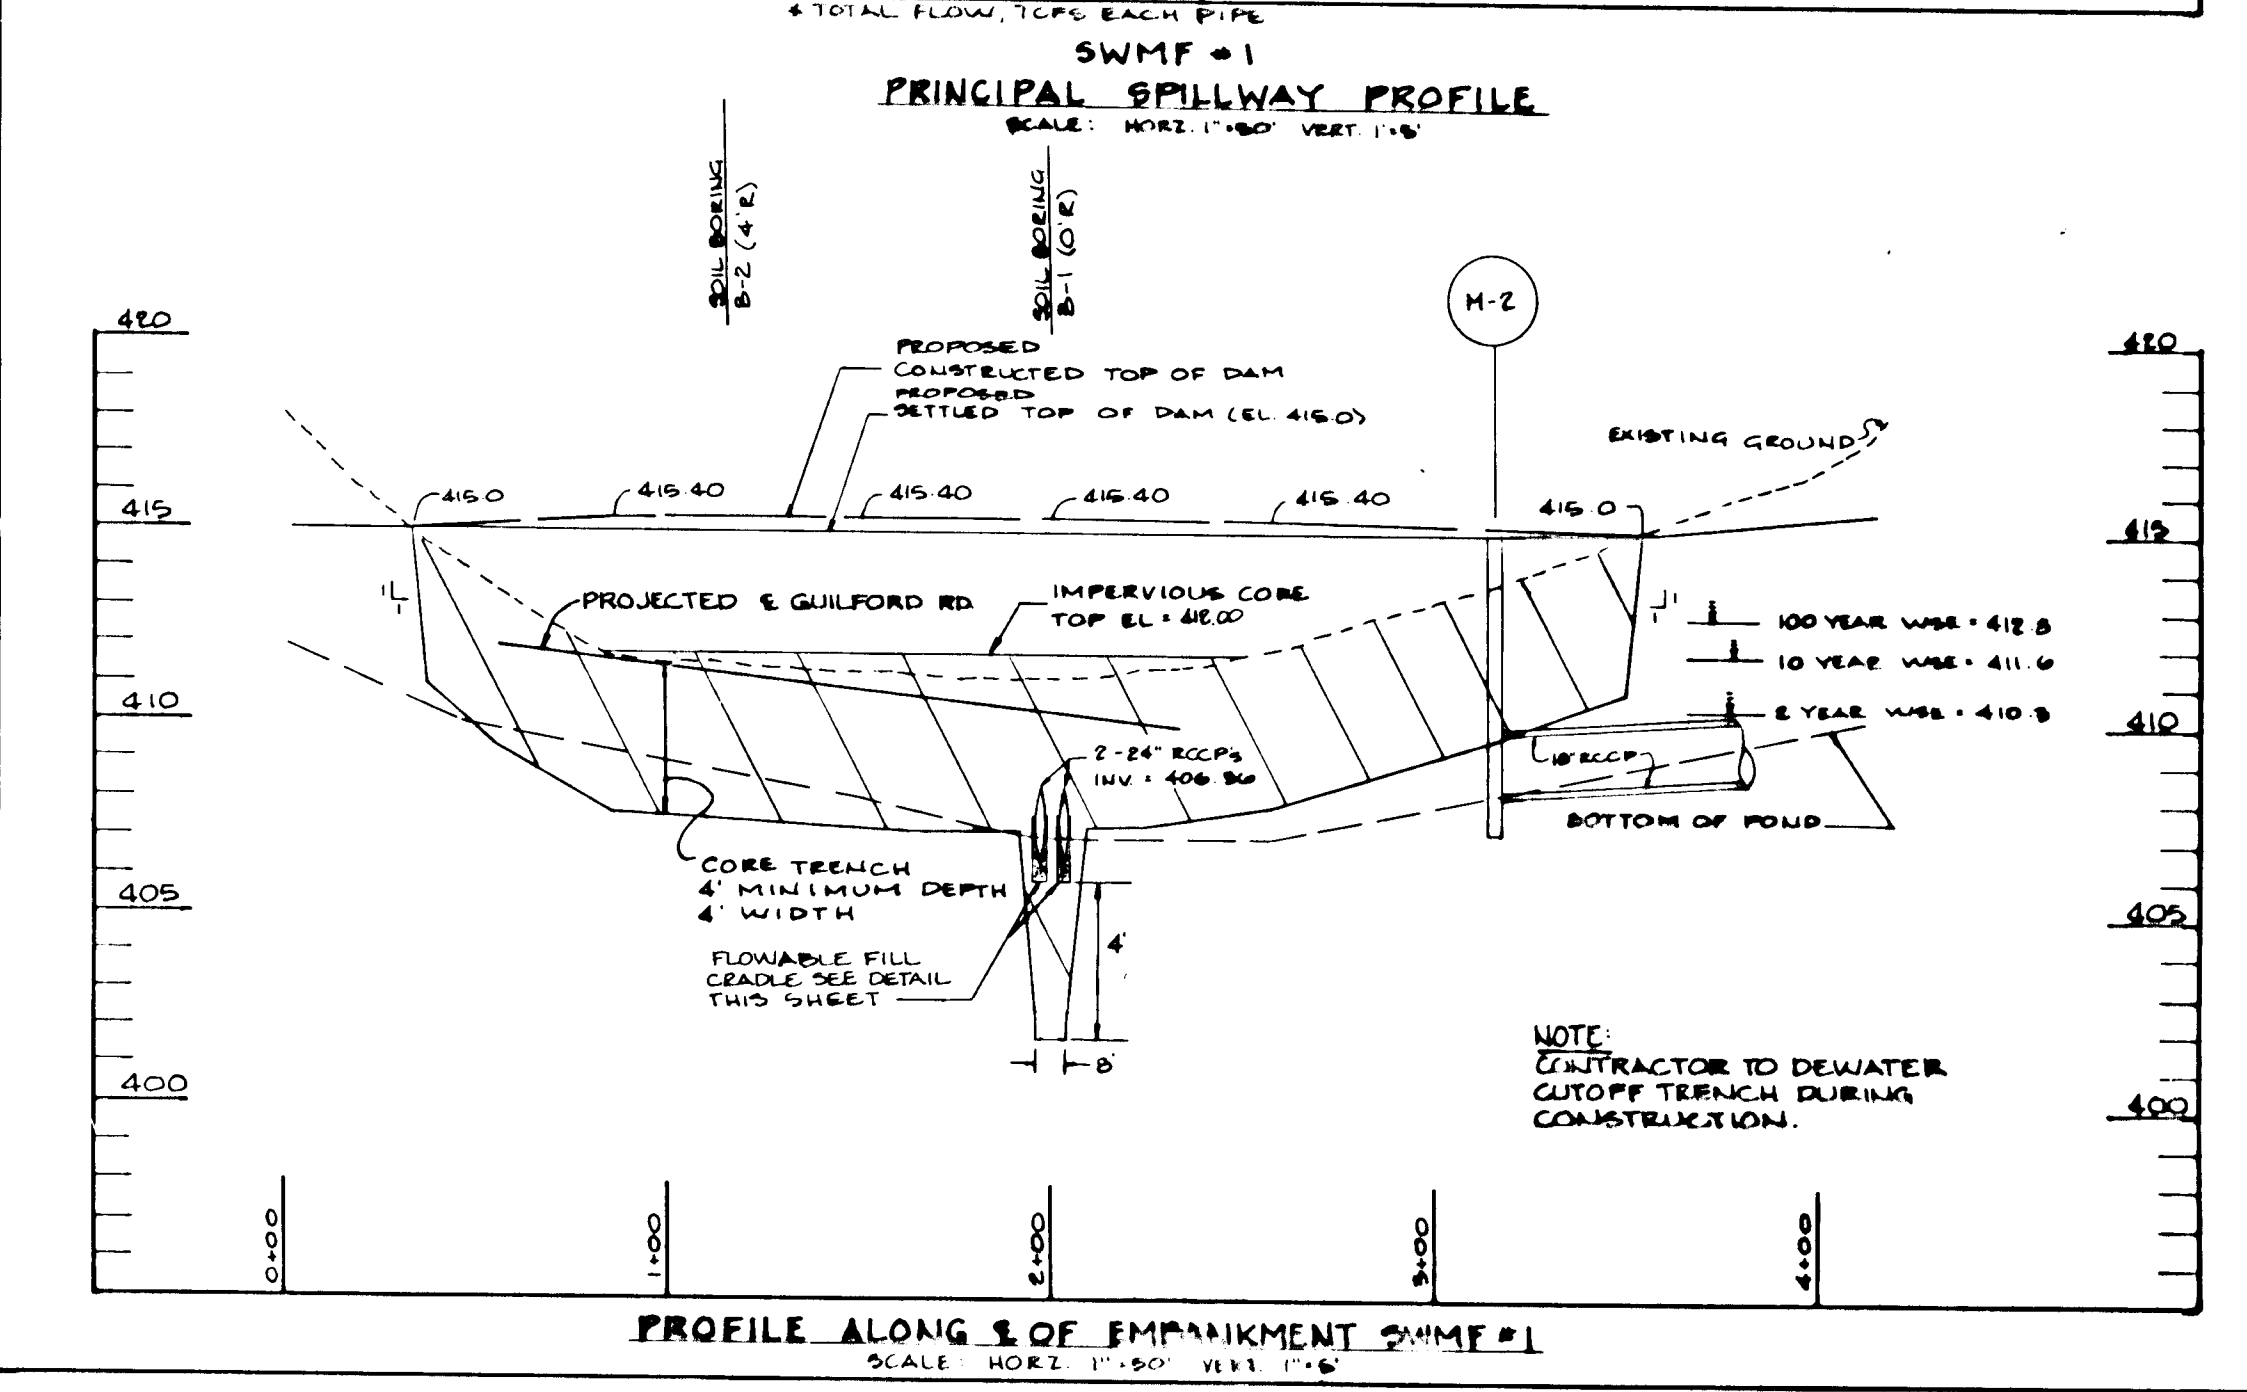 * TOTAL FLOW, 7CFS EACH PIPE
SWMF #1
PRINCIPAL SPILLWAY PROFILE
SCALE: HORZ. 1"=50' VERT. 1"=5'
SOIL BORING
B-2 (4'R)
SOIL BORING
B-1 (0'R)
M-2
420
420
PROPOSED
CONSTRUCTED TOP OF DAM
PROPOSED
SETTLED TOP OF DAM (EL. 415.0)
EXISTING GROUND
415.0
415.40
415.40
415.40
415.40
415.0
415
415
1
1
PROJECTED ℄ GUILFORD RD.
IMPERVIOUS CORE
TOP EL = 412.00
1
1
100 YEAR WSE = 412.8
10 YEAR WSE = 411.6
2 YEAR WSE = 410.3
410
410
2-24" RCCP's
INV. = 406.86
18" RCCP
BOTTOM OF POND
CORE TRENCH
4' MINIMUM DEPTH
4' WIDTH
405
405
FLOWABLE FILL
CRADLE SEE DETAIL
THIS SHEET
4'
8'
NOTE:
CONTRACTOR TO DEWATER
CUTOFF TRENCH DURING
CONSTRUCTION.
400
400
0+00
1+00
2+00
3+00
4+00
PROFILE ALONG ℄ OF EMBANKMENT SWMF #1
SCALE: HORZ. 1"=50' VERT. 1"=5'